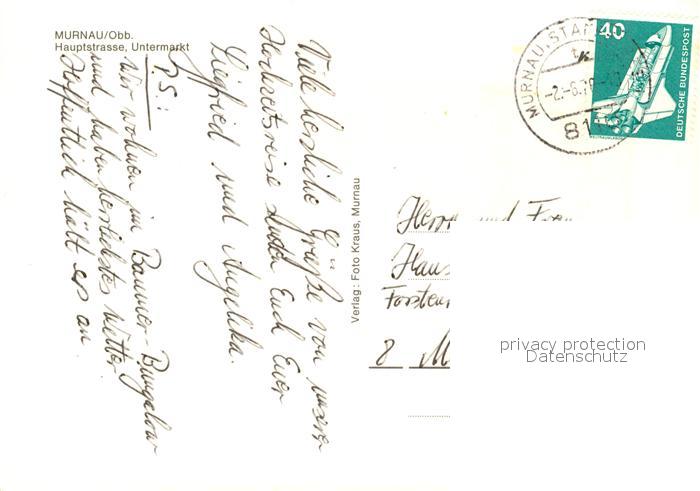 MURNAU/Obb.
Hauptstrasse, Untermarkt
Viele herzliche Grüße von unserer
Hochzeitsreise senden Euch Euer
Siegfried und Angelika.
PS:
Wir wohnen im Banner-Bungalow
und haben herrlichstes Wetter
Hoffentlich hält es an
Verlag: Foto Kraus, Murnau
MURNAU, STAF
40
DEUTSCHE BUNDESPOST
81
Herrn und Frau
Hans
Forsten
8 M
privacy protection
Datenschutz